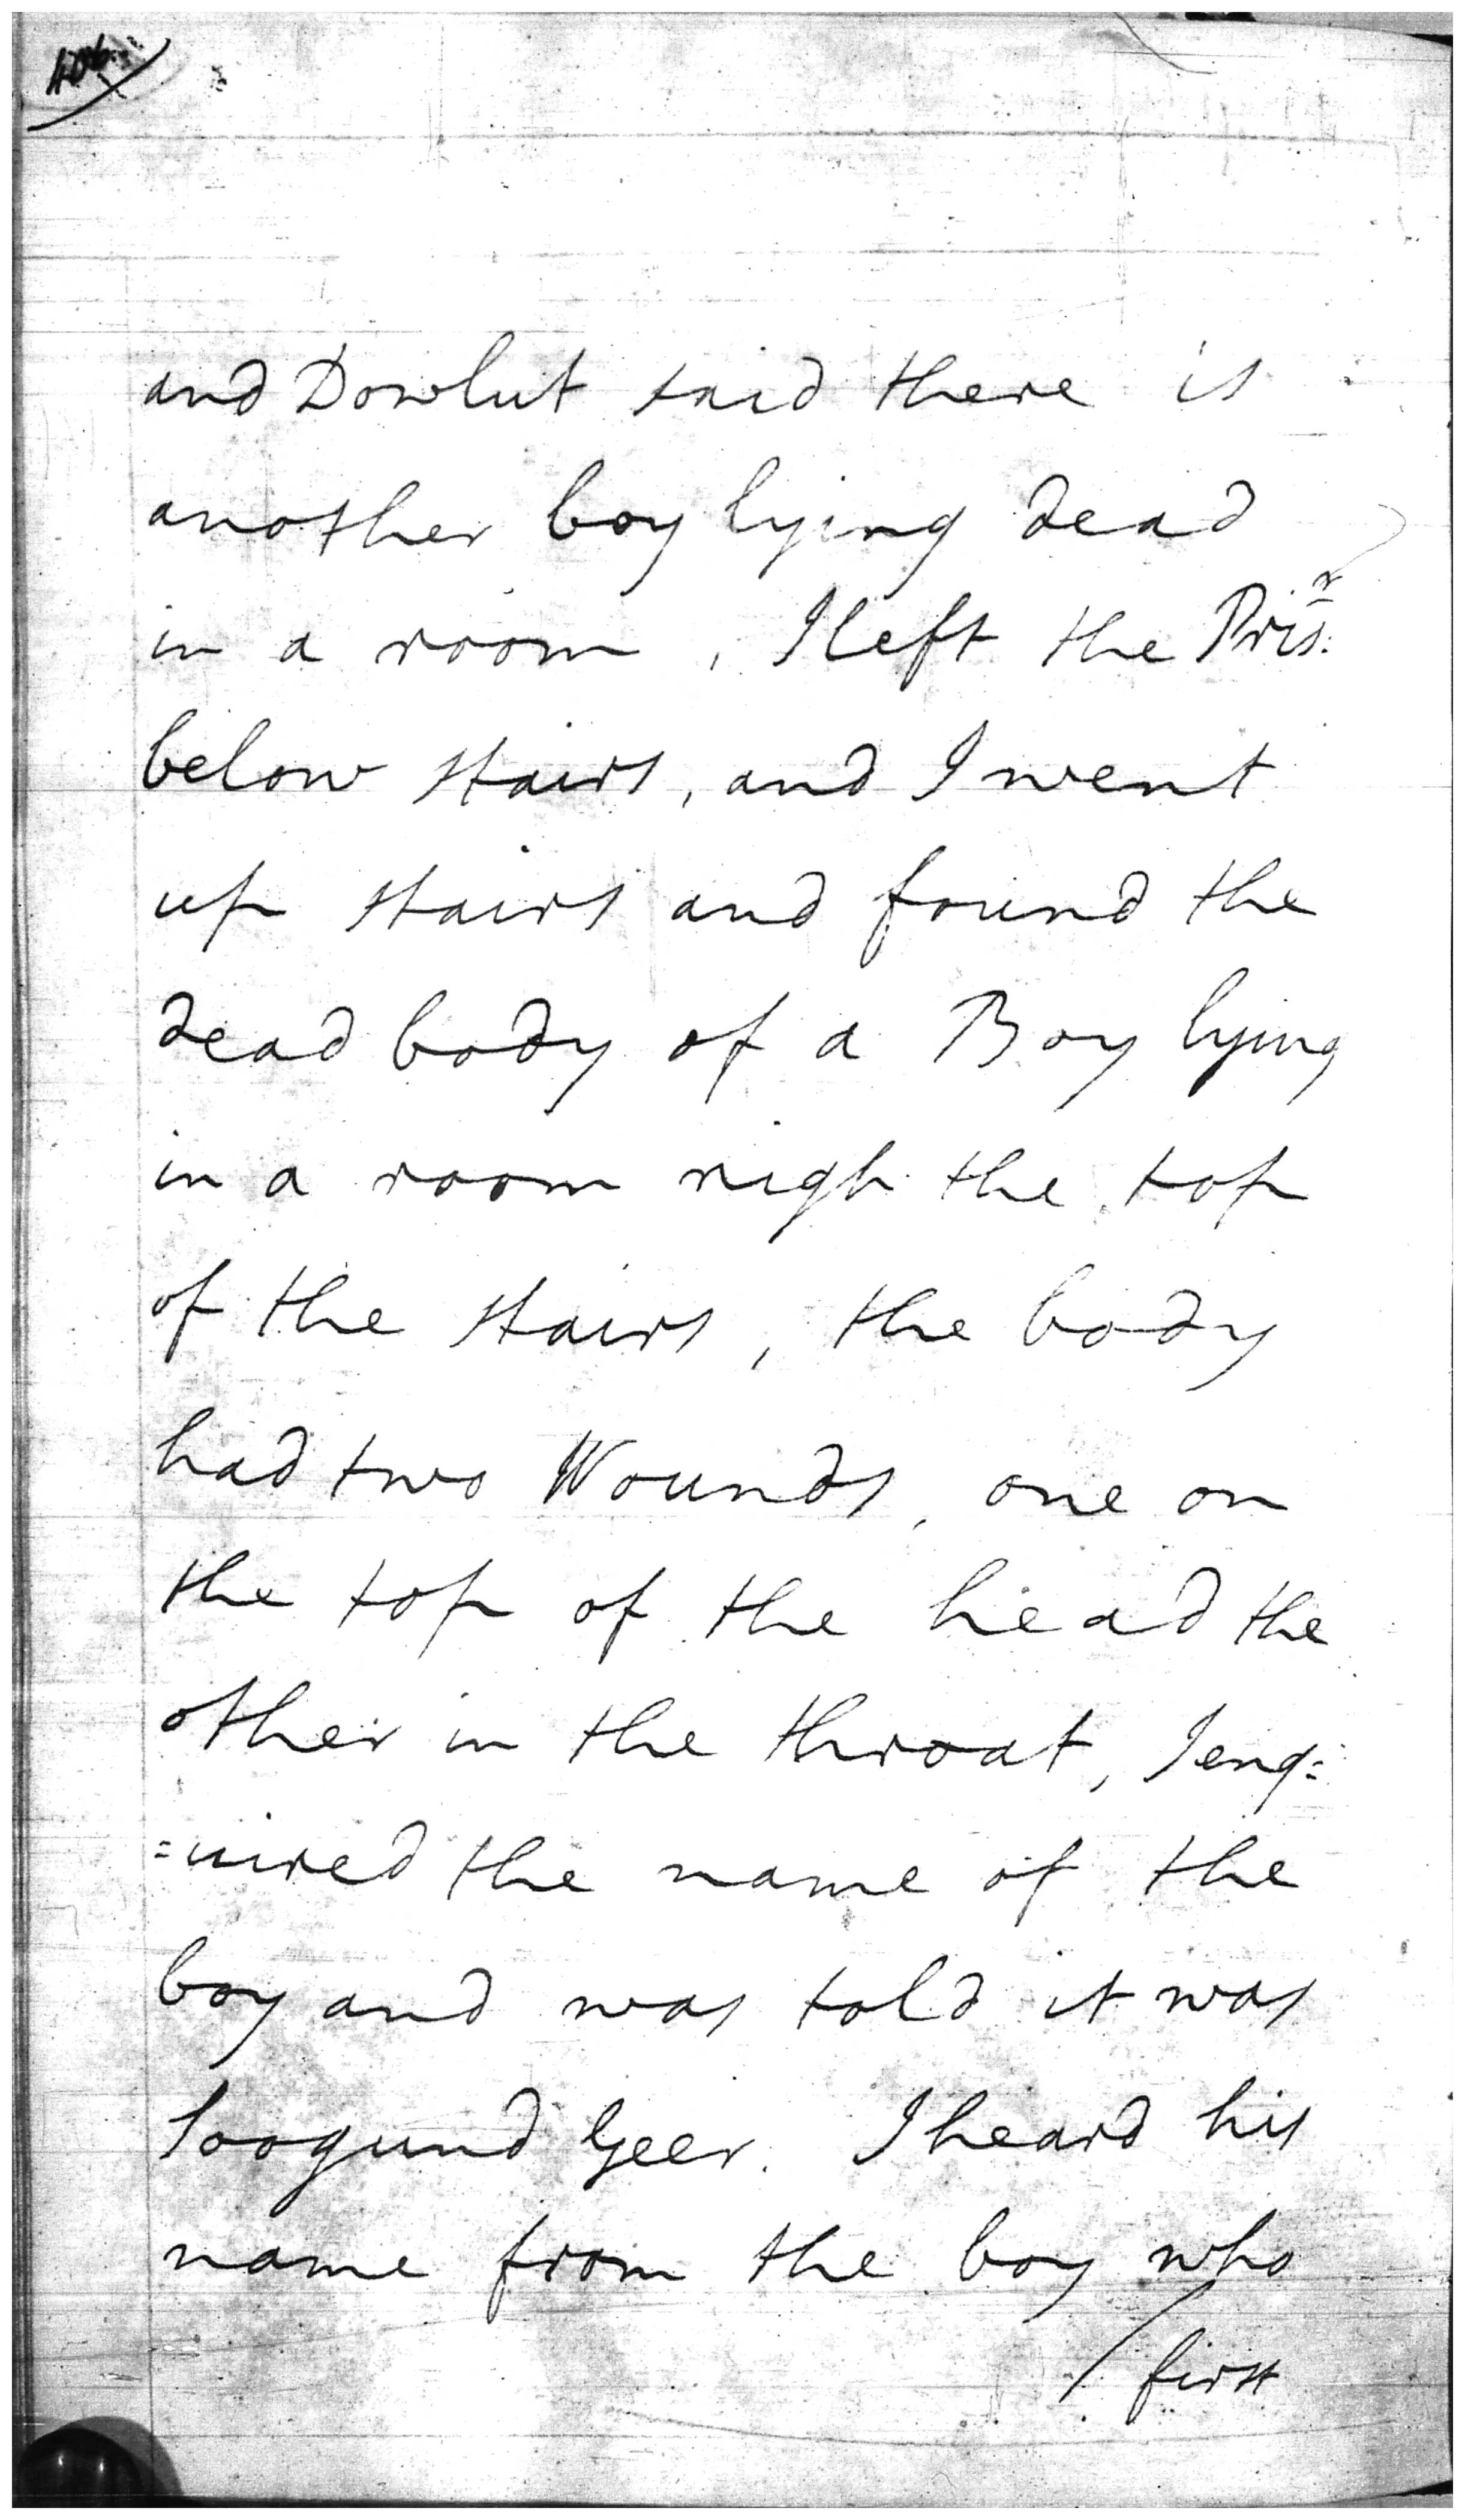 406
and Dowlut said there is
another boy lying dead
in a room, I left the Pris:r
below stairs, and I went
up stairs and found the
dead body of a Boy lying
in a room nigh the top
of the stairs, the body
had two Wounds, one on
the top of the head the
other in the throat, I enq=
=uired the name of the
boy and was told it was
Soogund Geer. I heard his
name from the boy who
/ first